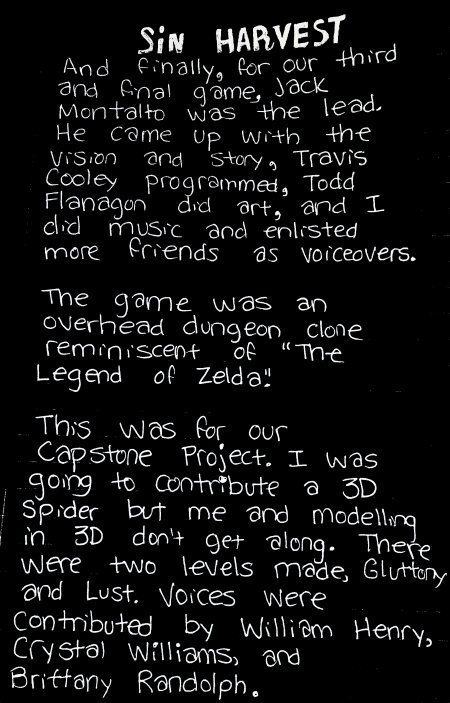 SiN HARVEST
And finally, for our third
and final game, Jack
Montalto was the lead.
He came up with the
vision and story, Travis
Cooley programmed, Todd
Flanagan did art, and I
did music and enlisted
more friends as voiceovers.
The game was an
overhead dungeon clone
reminiscent of "The
Legend of Zelda."
This was for our
Capstone Project. I was
going to contribute a 3D
Spider but me and modelling
in 3D don't get along. There
were two levels made, Gluttony
and Lust. Voices were
contributed by William Henry,
Crystal Williams, and
Brittany Randolph.